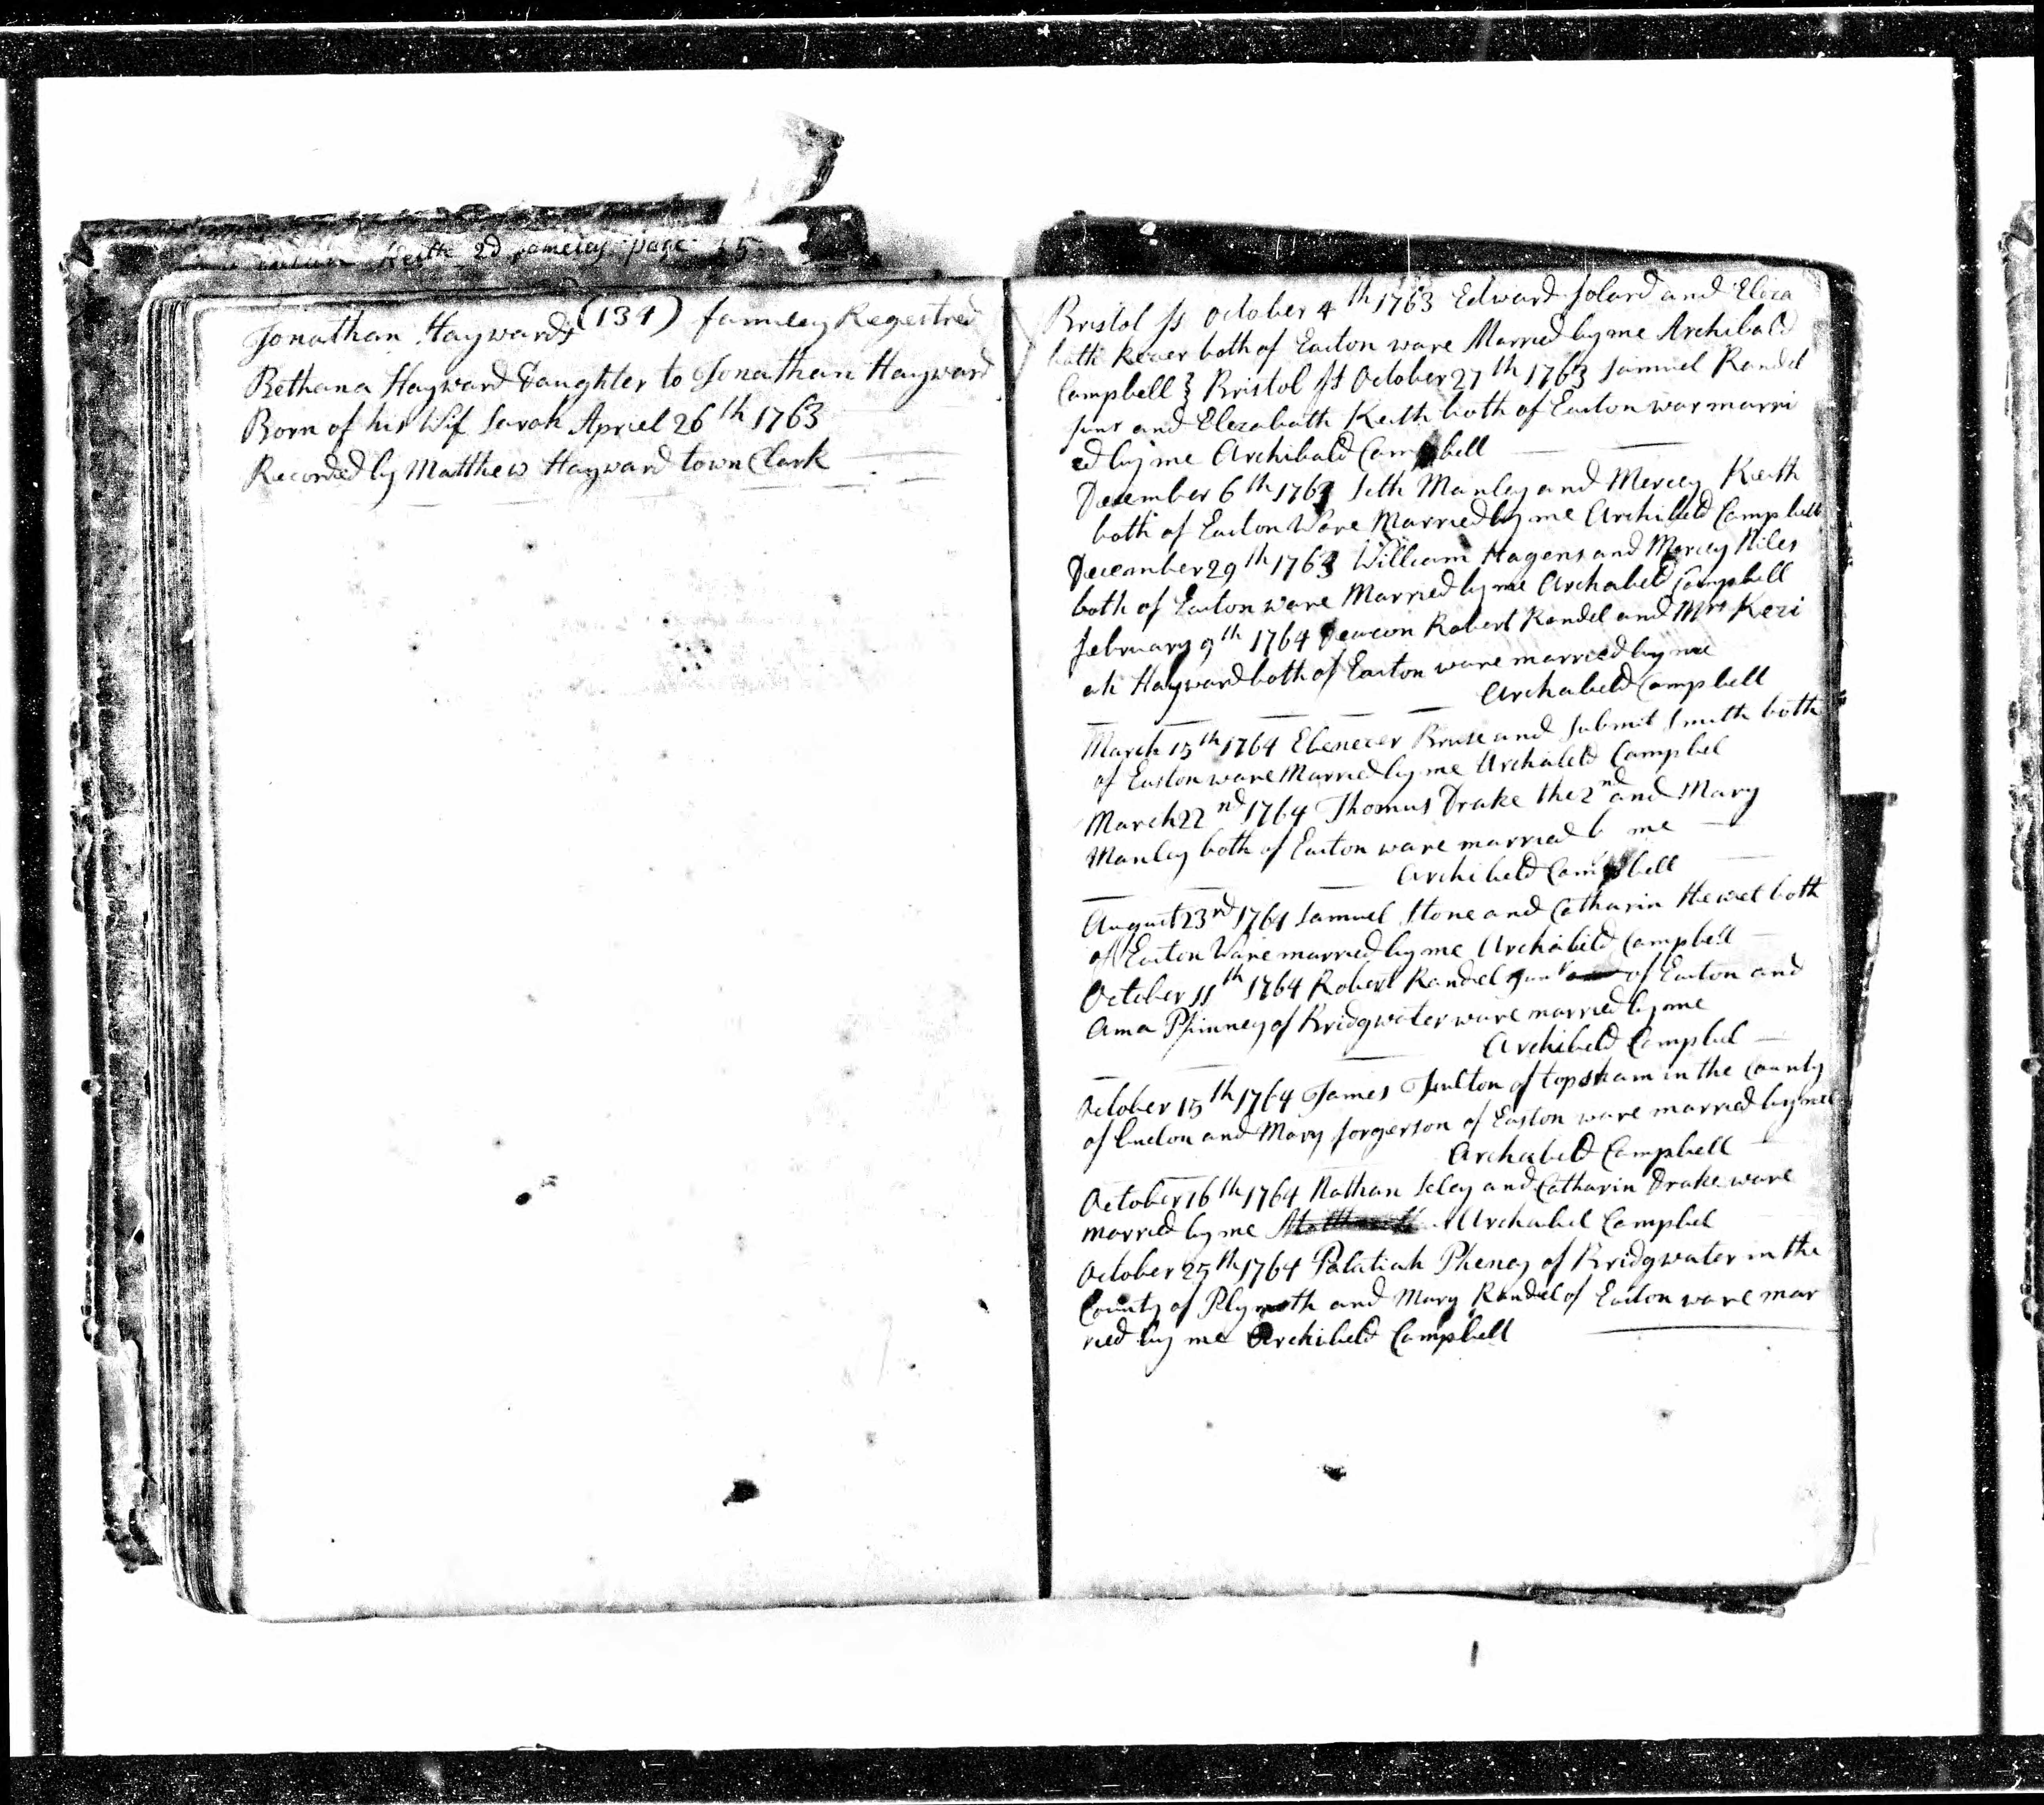 Keith 2d fameley page 15
Jonathan Haywards (134) fameley Regestred
Bethana Hayward Daughter to Jonathan Hayward
Born of his Wif Sarah Apriel 26th 1763
Recorded by Matthew Hayward town Clark
Bristol ss October 4th 1763 Edward Solard and Eleza
bath both of Easton ware Married by me Archibald
Campbell } Bristol ss October 27th 1763 Samuel Randel
and Elezabath Keith both of Easton war marri
ed by me Archibald Campbell
December 6th 1763 Seth Manley and Mercey Keith
both of Easton Ware Married by me Archibeld Campbell
December 29th 1763 William Hagens and Mercey Niles
both of Easton ware Married by me Archabeld Campbell
February 9th 1764 Deacon Robert Randel and Mrs Kezi
ah Hayward both of Easton ware married by me
Archabeld Campbell
March 15th 1764 Ebenezer Bruse and Submit Smith both
of Easton ware Married by me Archabeld Campbel
March 22nd 1764 Thomas Drake the 2nd and Mary
Manley both of Easton ware married b me
Archibeld Campbell
August 23rd 1764 Samuel Stone and Catharin Hewet both
of Easton Ware married by me Archibild Campbell
October 11th 1764 Robert Randel Junr of Easton and
Ama Phinney of Bridgwater ware married by me
Archibeld Campbel
October 15th 1764 James Fulton of topsham in the County
of Lincoln and Mary Forgerson of Easton ware married by me
Archabeld Campbell
October 16th 1764 Nathan Seley and Catharin Drake ware
married by me Archabel Campbel
October 25th 1764 Palatiah Pheney of Bridgwater in the
County of Plymoth and Mary Randel of Easton ware mar
ried by me Archibeld Campbell